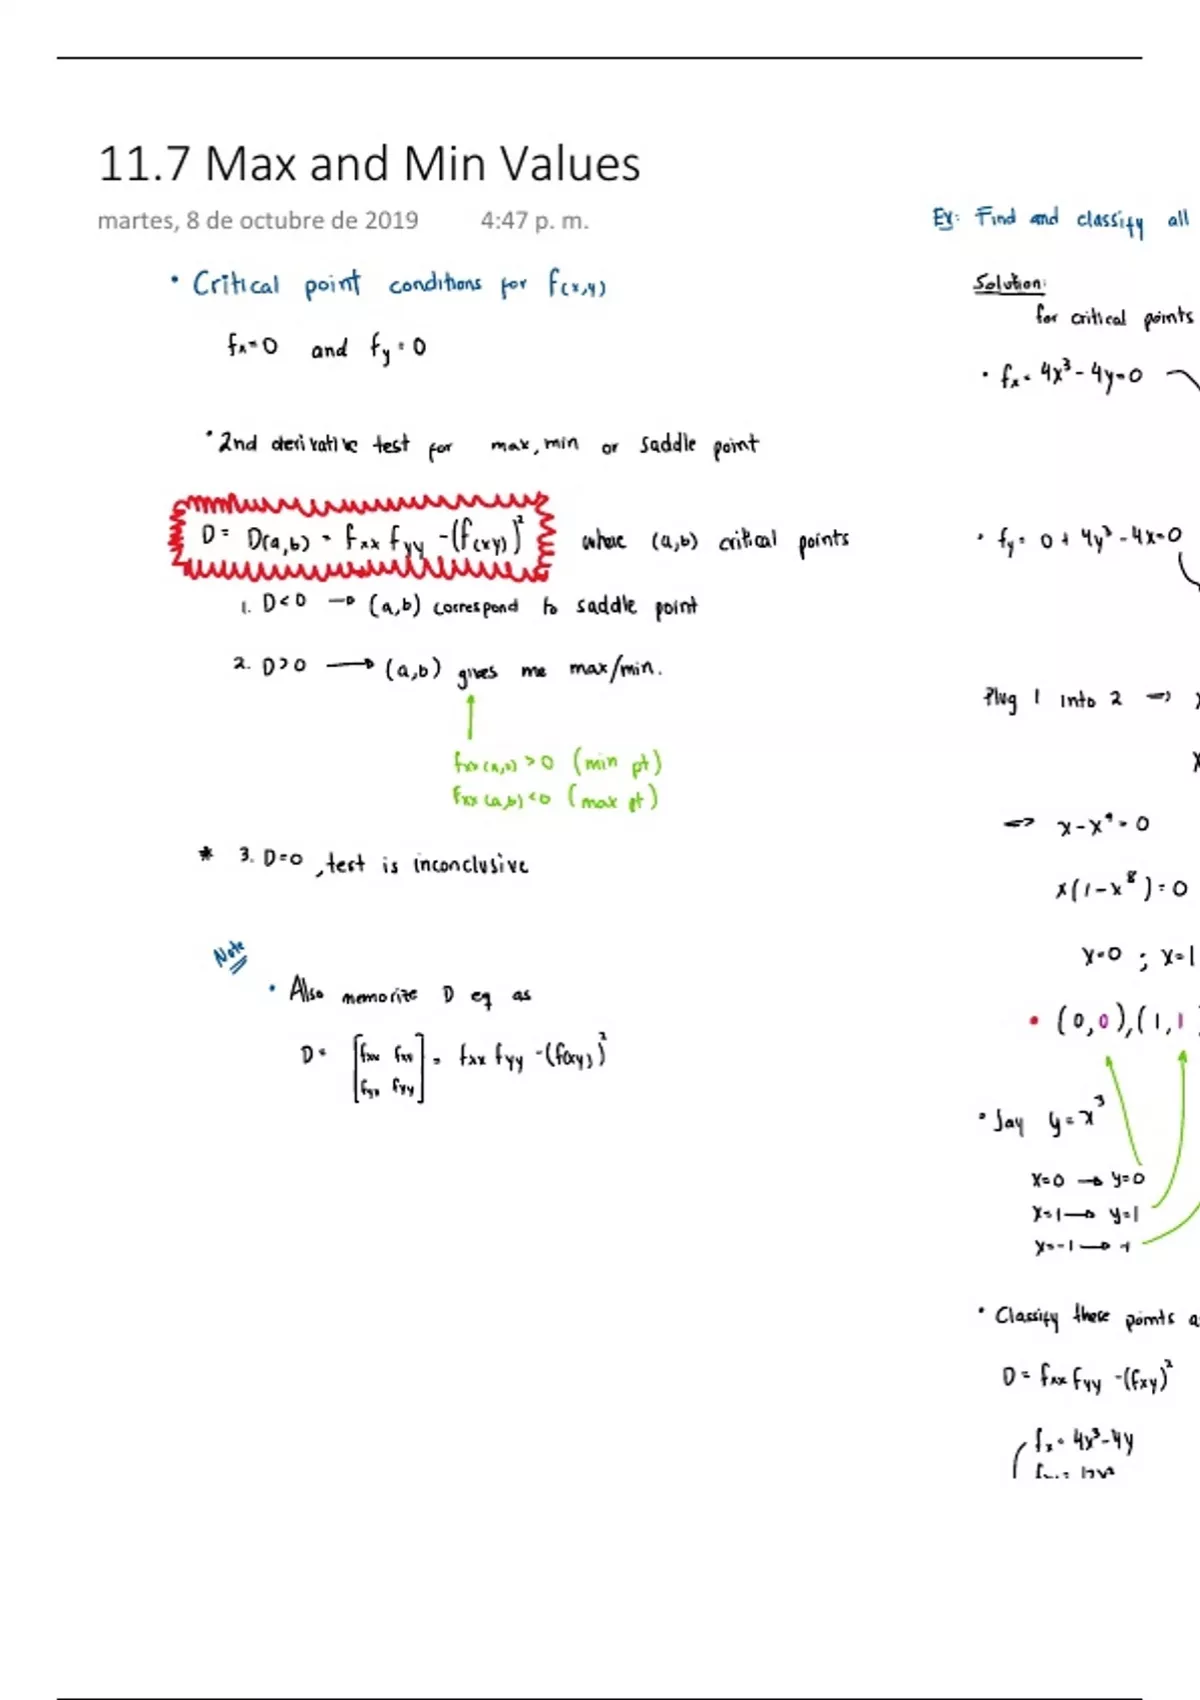 11.7 Max and Min Values
martes, 8 de octubre de 2019 4:47 p. m.
• Critical point conditions for f(x,y)
fx=0 and fy=0
• 2nd derivative test for max, min or saddle point
D = D(a,b) = fxx fyy -(f(xy))² where (a,b) critical points
1. D<0 → (a,b) correspond to saddle point
2. D>0 → (a,b) gives me max/min.
fxx(a,b) >0 (min pt)
fxx(a,b) <0 (max pt)
* 3. D=0, test is inconclusive
Note
• Also memorize D eq as
D = [fxx fxy
fyx fyy] = fxx fyy -(f(xy))²
Ex: Find and classify all
Solution:
for critical points
• fx = 4x³ - 4y=0
• fy= 0 + 4y³ - 4x=0
Plug 1 into 2 ⇒
⇒ x-x⁹=0
x(1-x⁸)=0
x=0 ; x=1
• (0,0),(1,1
• Say y=x³
x=0 → y=0
x=1 → y=1
x=-1 → -1
• Classify these points a
D= fxx fyy -(fxy)²
fx = 4x³-4y